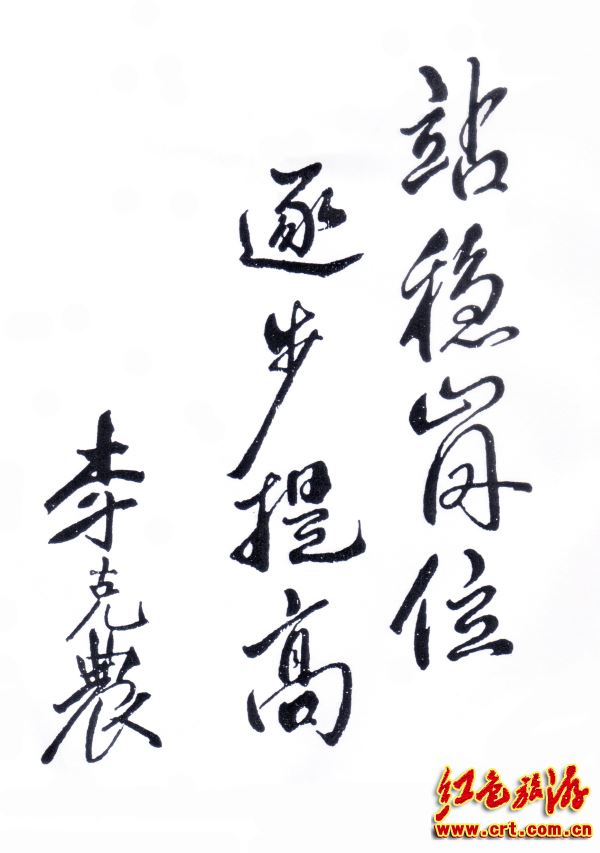 站稳岗位
逐步提高
李克農
红色旅游
www.crt.com.cn